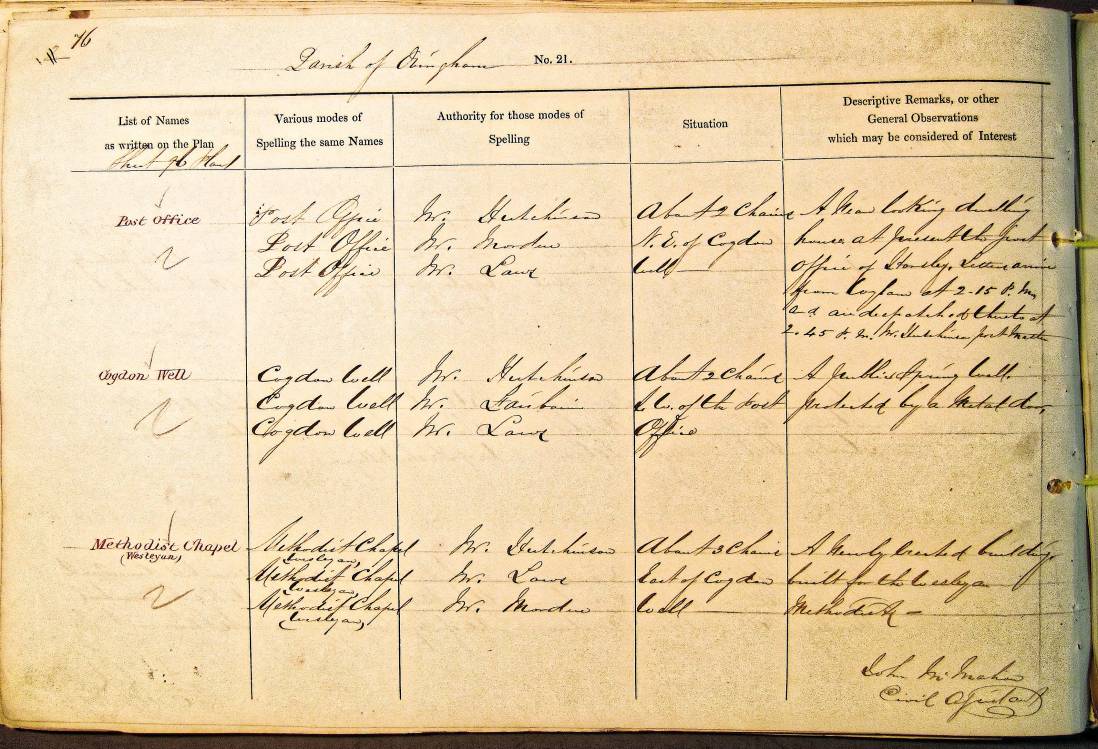 76
Parish of Ovingham No. 21.
List of Names
as written on the Plan
Various modes of
Spelling the same Names
Authority for those modes of
Spelling
Situation
Descriptive Remarks, or other
General Observations
which may be considered of Interest
Sheet 96
Post Office
Post Office
Post Office
Post Office
Mr. Hutchinson
Mr. Morden
Mr. Laws
About 2 Chains
N. E. of Cogdon
Well
A Neat looking dwelling
house, at present the post
Office of Horsley. Letters arrive
from Wylam at 2-15 P. M.
and are despatched thereto at
2.45 P. M. W. Hutchinson post Master
Cogdon Well
Cogdon Well
Cogdon Well
Cogdon Well
Mr. Hutchinson
Mr. Fairbairn
Mr. Laws
About 2 Chains
S. W. of the Post
Office
A public Spring Well.
protected by a Metal door,
Methodist Chapel
(Wesleyan)
Methodist Chapel
(Wesleyan)
Methodist Chapel
(Wesleyan)
Methodist Chapel
(Wesleyan)
Mr. Hutchinson
Mr. Laws
Mr. Morden
About 3 Chains
East of Cogdon
Well
A Newly Erected building,
built for the Wesleyan
Methodists
John McMahon
Civil Assistant